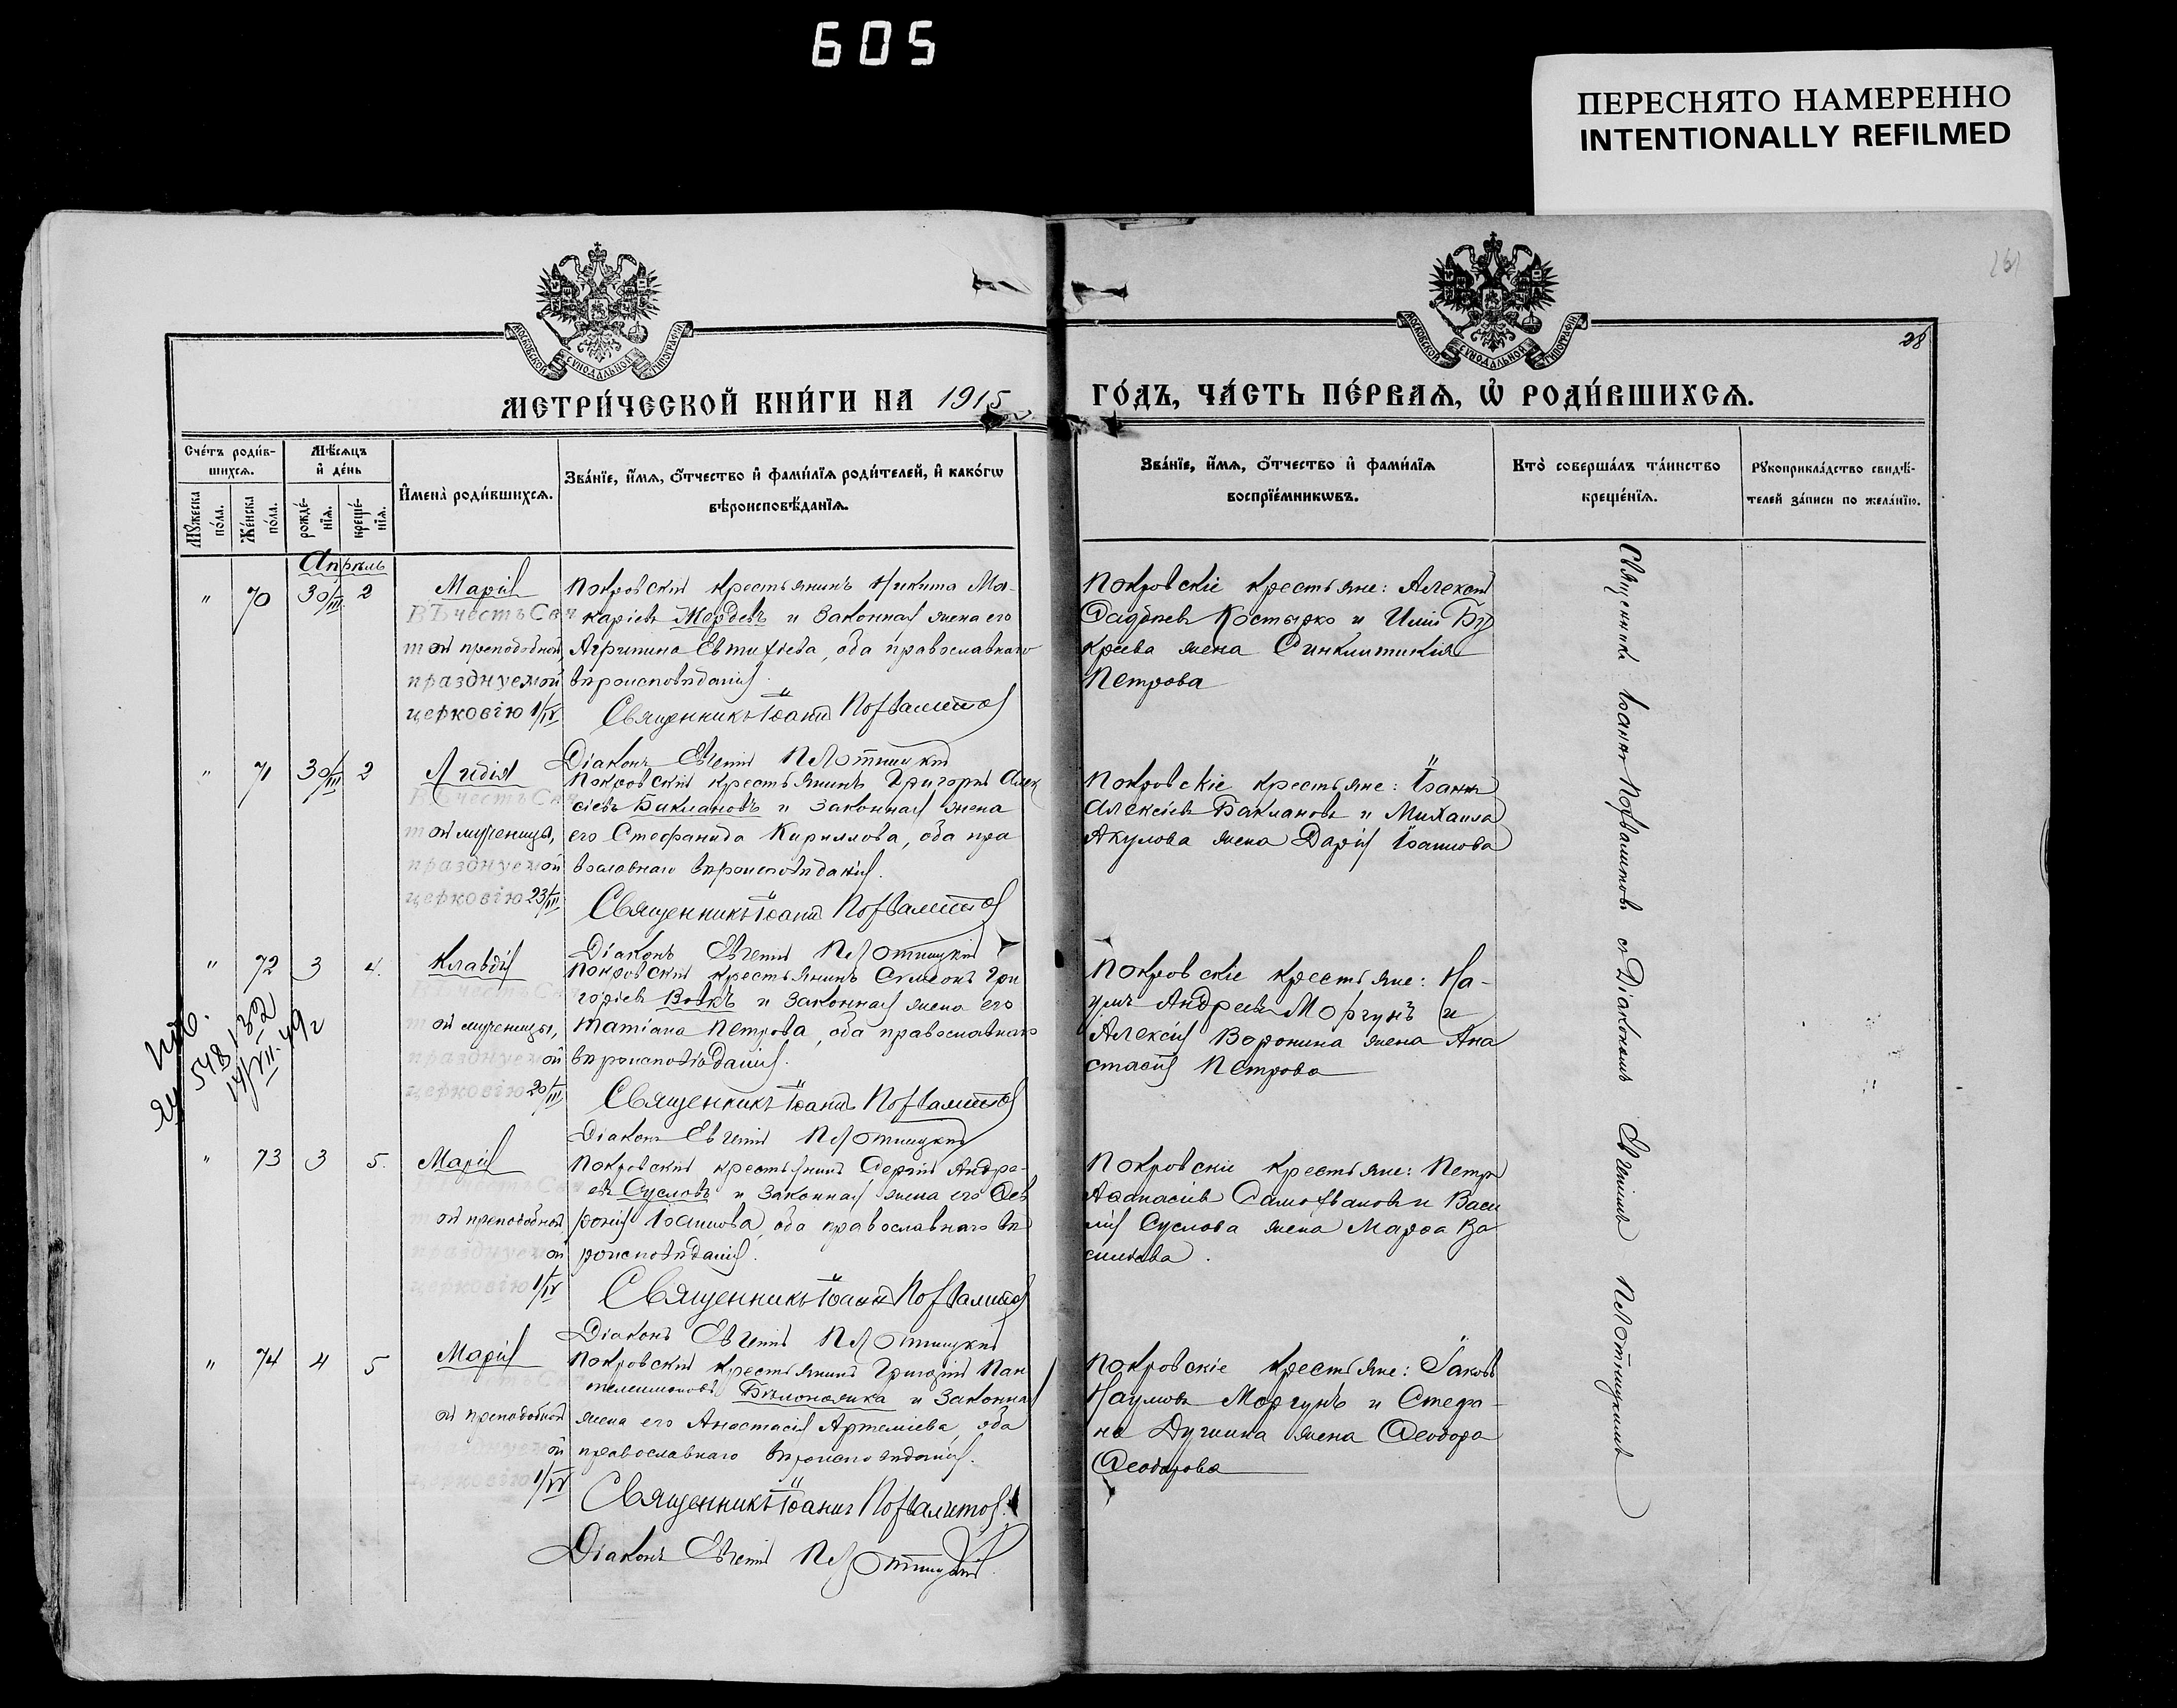 605
ПЕРЕСНЯТО НАМЕРЕННО
INTENTIONALLY REFILMED
161
28
МОСКОВСКОЙ СѴНОДАЛЬНОЙ ТИПОГРАФІИ
МОСКОВСКОЙ СѴНОДАЛЬНОЙ ТИПОГРАФІИ
МЕТРИ́ЧЕСКОЙ КНИ́ГИ НА 1915
ГО́ДЪ, ЧА́СТЬ ПЕ́РВАЯ, Ѽ РОДИ́ВШИХСЯ.
Сче́тъ роди́в-
шихся.
Мѣ́сяцъ
и҆ де́нь
Мꙋ́жеска по́ла.
Же́нска по́ла.
рожде́-нїя.
креще́-нїя.
И҆мена̀ роди́вшихся.
Зва́нїе, и҆́мя, ѻ҆́тчество и҆ фами́лїя роди́телей, и҆ како́гѡ
вѣроисповѣ́данїя.
Зва́нїе, и҆́мя, ѻ҆́тчество и҆ фами́лїя
воспрїе́мникѡвъ.
Кто̀ соверша́лъ та́инство
креще́нїя.
Рꙋкоприкла́дство свидѣ́-
телей за́писи по жела́нїю.
Апрѣль
" 70 30/III 2
Марія
Въ честь Свя
той преподобной,
празднуемой
церковію 1/IV
Покровскій крестьянинъ Никита Ма-
каріевъ Жердевъ и законная жена его
Агрипина Евтихіева, оба православнаго
вѣроисповѣданія.
Священникъ Іоаннъ Похвалитовъ
Діаконъ Евгеній Плотницкій
Покровскіе крестьяне: Алексій
Фаддѣевъ Костырко и Иліи Бу
креева жена Синклитикія
Петрова
" 71 30/III 2
Лидія
Въ честь Свя
той мученицы,
празднуемой
церковію 23/III
Покровскій крестьянинъ Григорій Алек
сіевъ Баклановъ и законная жена
его Стефанида Кириллова, оба пра
вославнаго вѣроисповѣданія.
Священникъ Іоаннъ Похвалитовъ
Діаконъ Евгеній Плотницкій
Покровскіе крестьяне: Іоаннъ
Алексіевъ Баклановъ и Михаила
Акулова жена Дарія Іоаннова
" 72 3 4.
Клавдія
Въ честь Свя
той мученицы,
празднуемой
церковію 20/III
Покровскій крестьянинъ Сумеонъ Гри
горіевъ Волкъ и законная жена его
Татіана Петрова, оба православнаго
вѣроисповѣданія.
Священникъ Іоаннъ Похвалитовъ
Діаконъ Евгеній Плотницкій
Покровскіе крестьяне: На-
умъ Андреевъ Моргунъ и
Алексія Воронина жена Ана
стасія Петрова
548132
14/VII.49г
" 73 3 5.
Марія
Въ честь Свя
той преподобной
празднуемой
церковію 1/IV
Покровскій крестьянинъ Сергій Андре-
евъ Сусловъ и законная жена его Фев
ронія Іоаннова, оба православнаго вѣ
роисповѣданія.
Священникъ Іоаннъ Похвалитовъ
Діаконъ Евгеній Плотницкій
Покровскіе крестьяне: Петръ
Аѳанасіевъ Самохваловъ и Васи
лія Суслова жена Марѳа Ва
сильева.
" 74 4 5
Марія
ой преподобной
ой
церковію 1/IV
Покровскій крестьянинъ Григорій Пан
телеимоновъ Бѣлоножка и законная
жена его Анастасія Артеміева, оба
православнаго вѣроисповѣданія.
Священникъ Іоаннъ Похвалитовъ.
Діаконъ Евгеній Плотницкій
Покровскіе крестьяне: Іаковъ
Наумовъ Моргунъ и Стефа-
на Дугина жена Ѳеодора
Ѳеодорова
Священникъ Іоаннъ Похвалитовъ съ Діакономъ Евгеніемъ Плотницкимъ